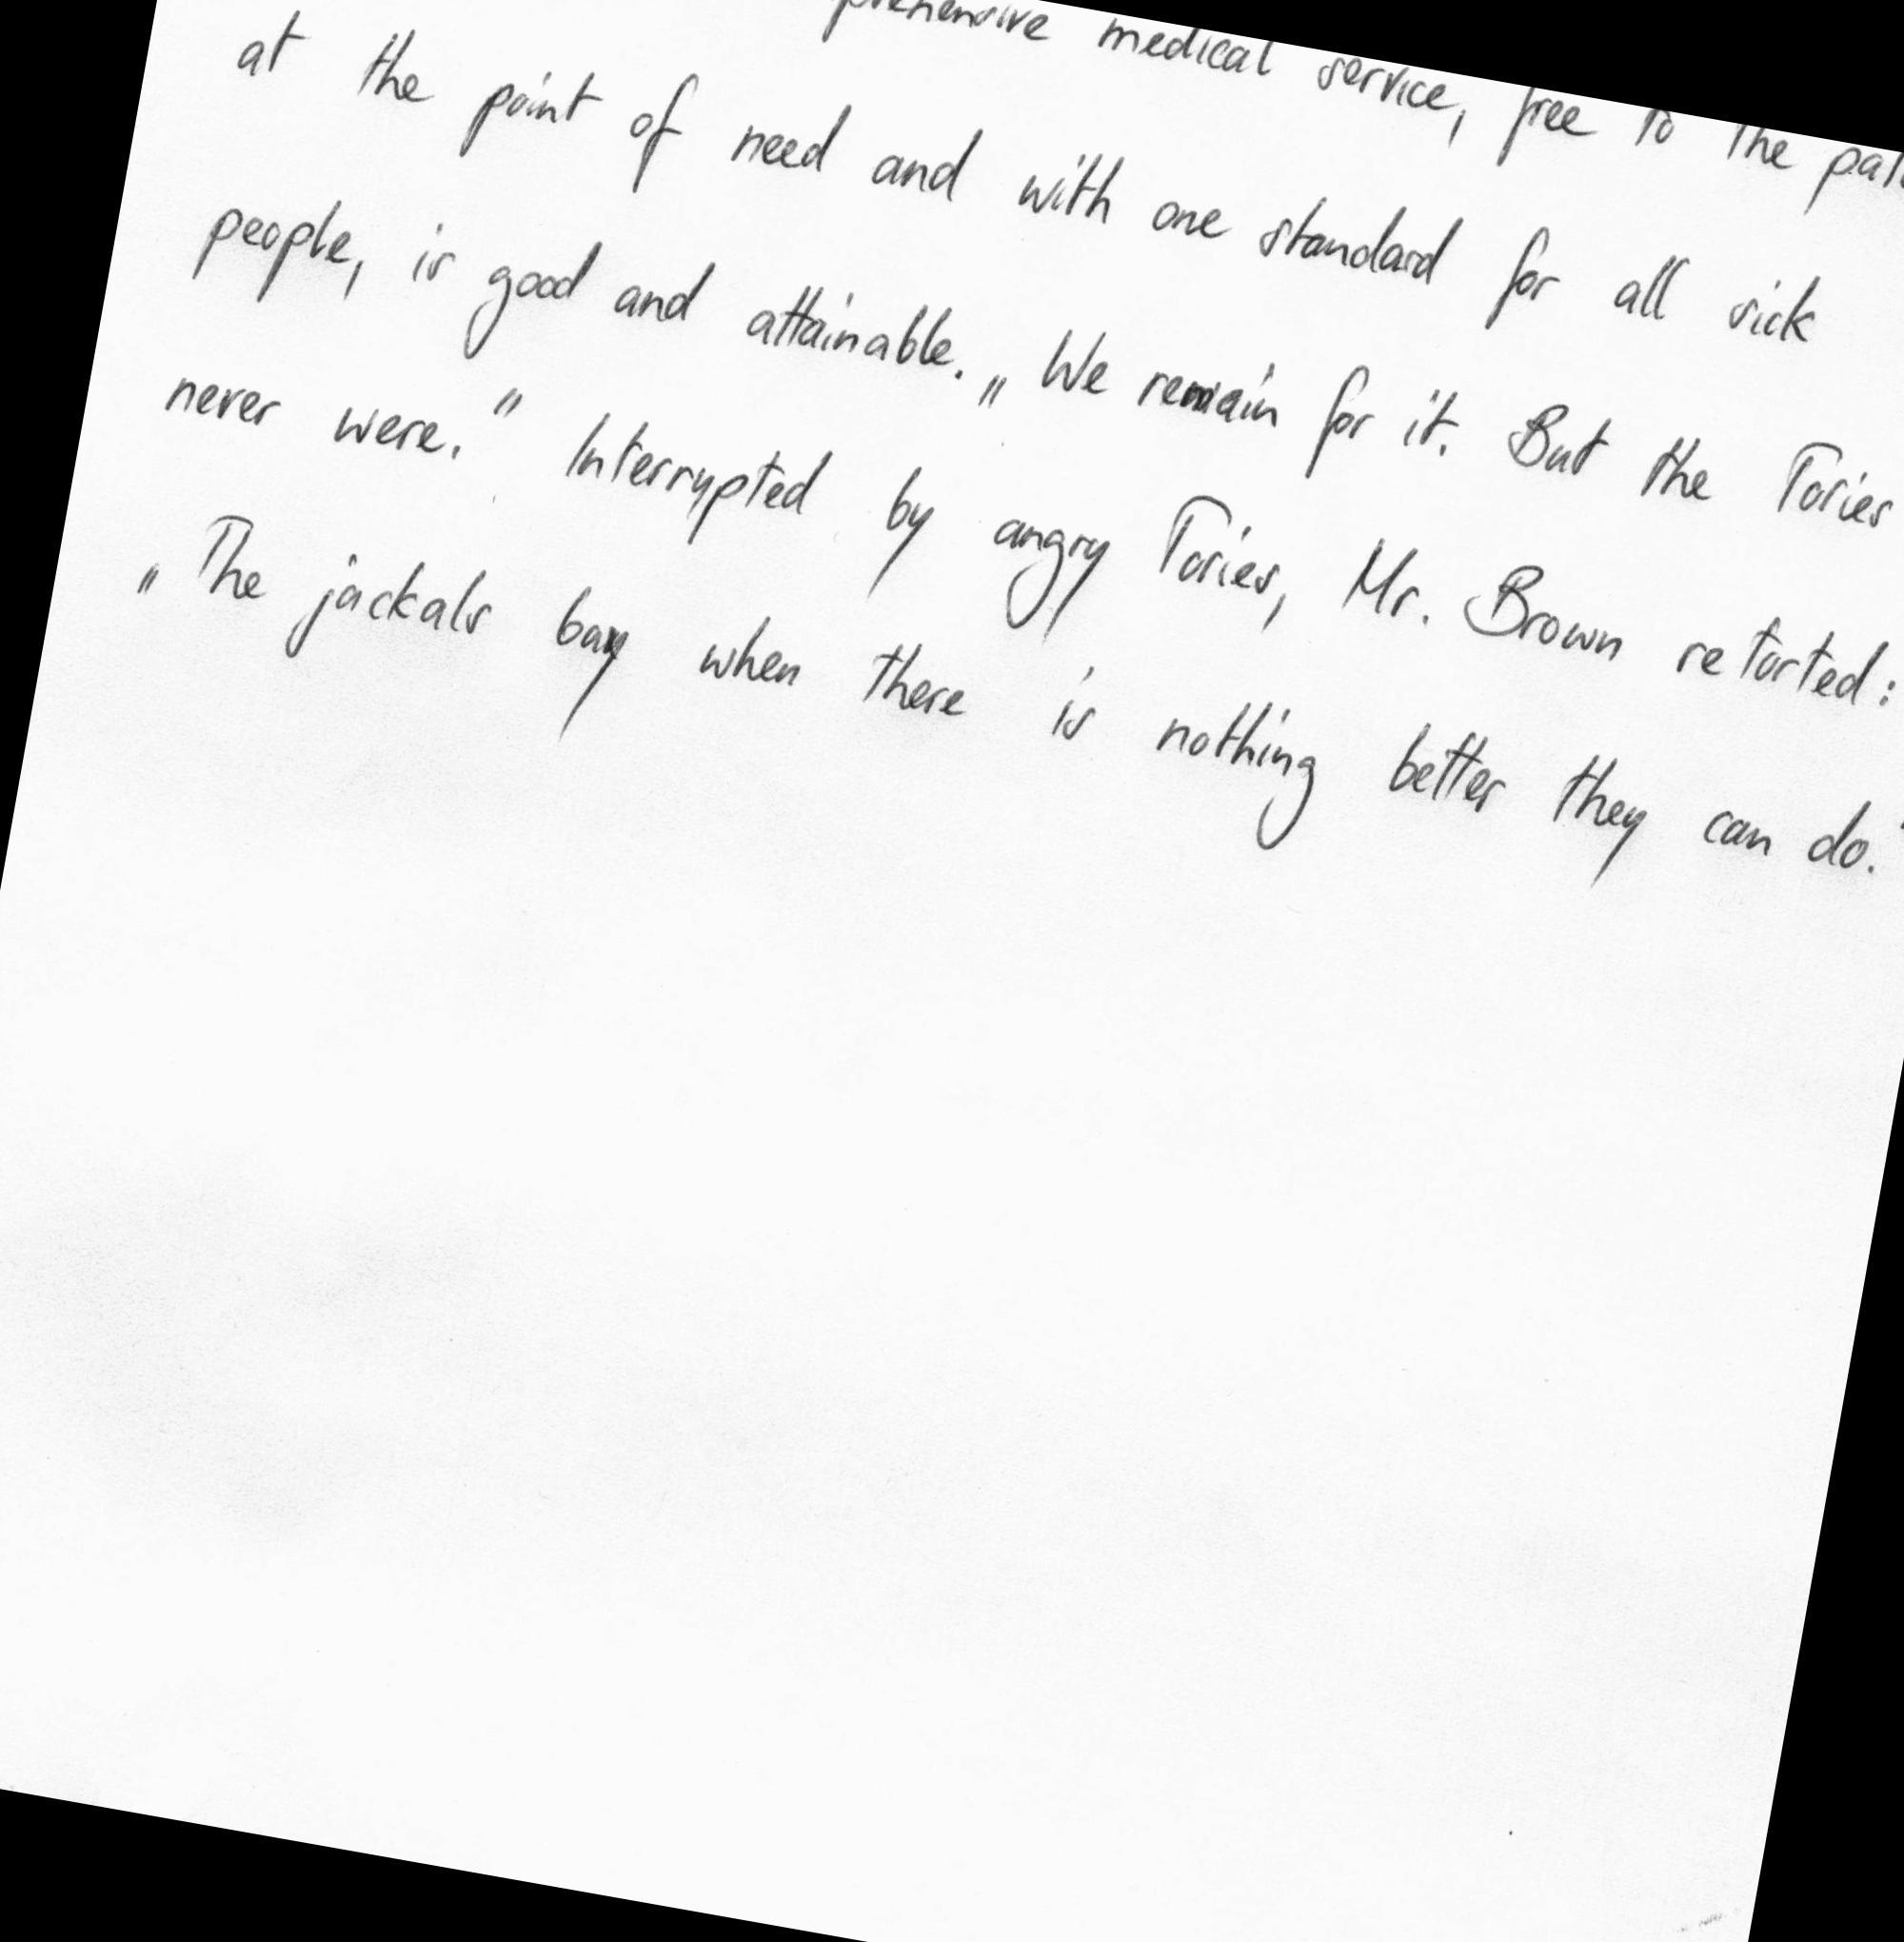 medical service, free to the
at the point of need and with one standard for all sick
people, is good and attainable. „We remain for it. But the Tories
never were." Interrypted by angry Tories, Mr. Brown retorted:
„The jackals bay when there is nothing better they can do."